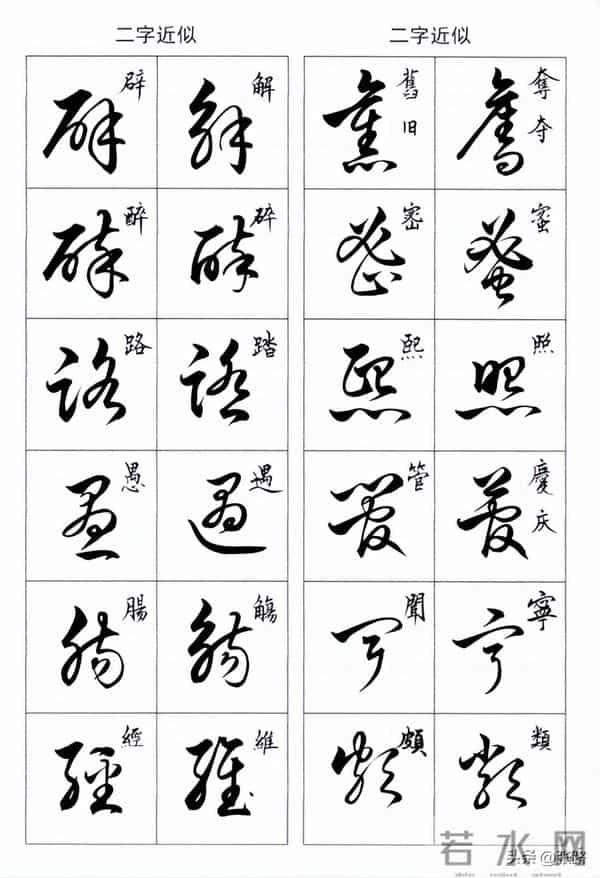 二字近似
辟 解
醉 碎
路 踏
愚 遇
腸 觴
經 維
二字近似
舊 旧 奪 夺
密 蜜
熙 照
管 慶 庆
聞 寧
頗 類
若水网
头条